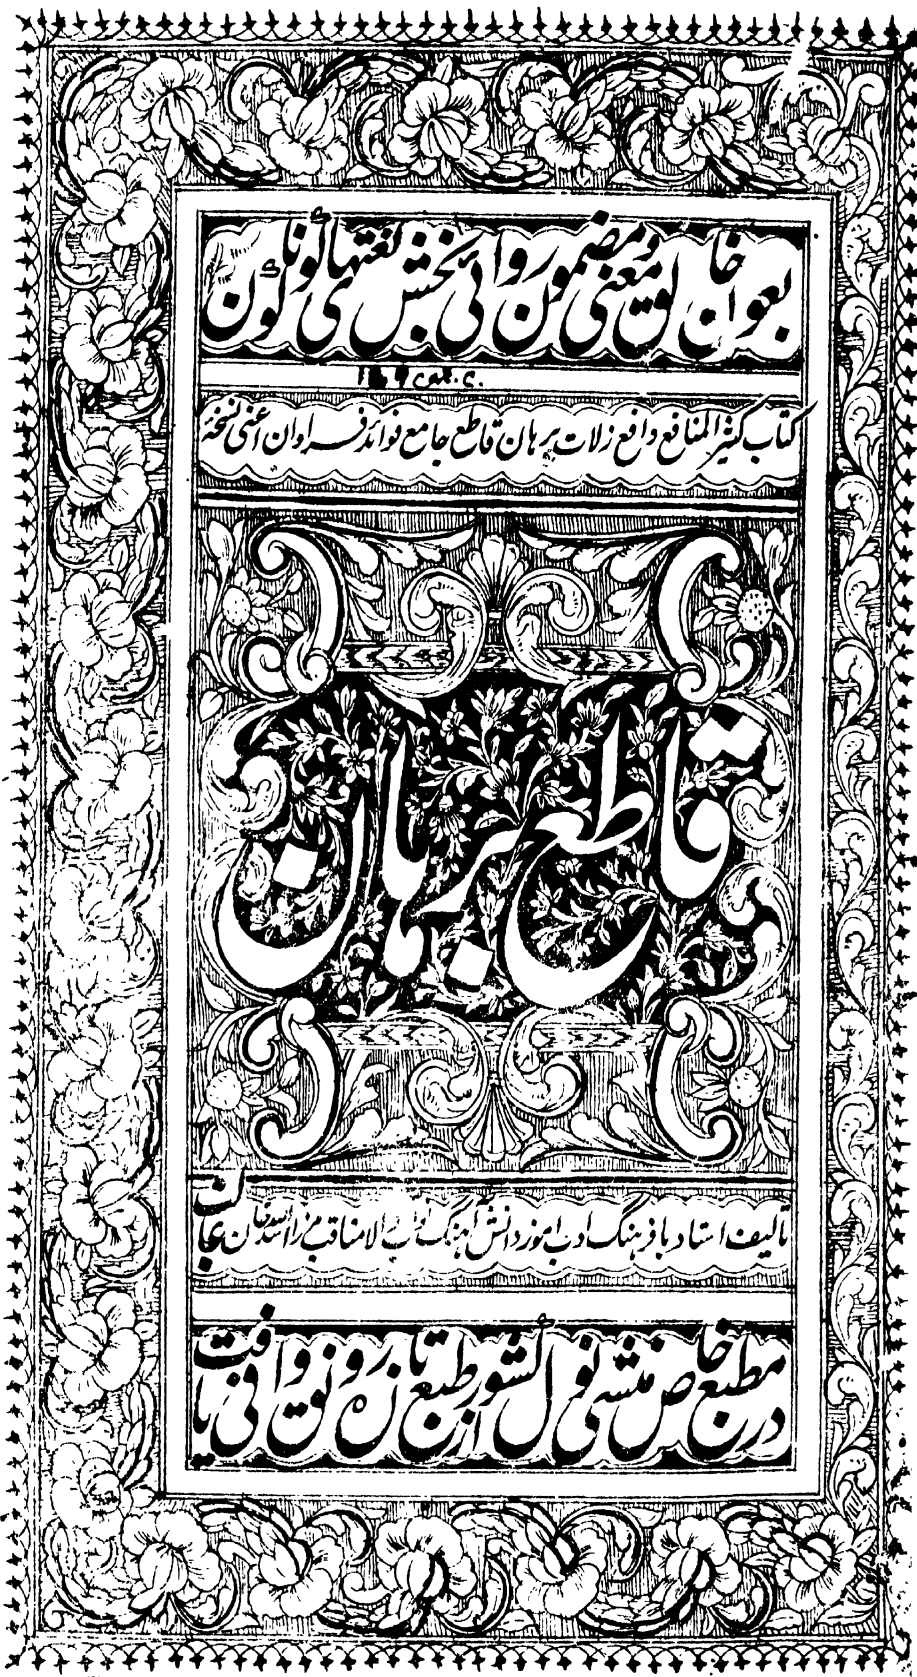 بعون خالق معنی و مضمون روائی بخش لغتهای گوناگون
کتاب کثیر المنافع دافع زلات برهان قاطع جامع فوائد فراوان اعنی نسخهٔ
قاطع برهان
تالیف استاد با فرهنگ ادب آموز دانش آهنگ مرزا اسد الله خان غالب
در مطبع خاص منشی نول کشور از طبع تازه رونق وافی یافت